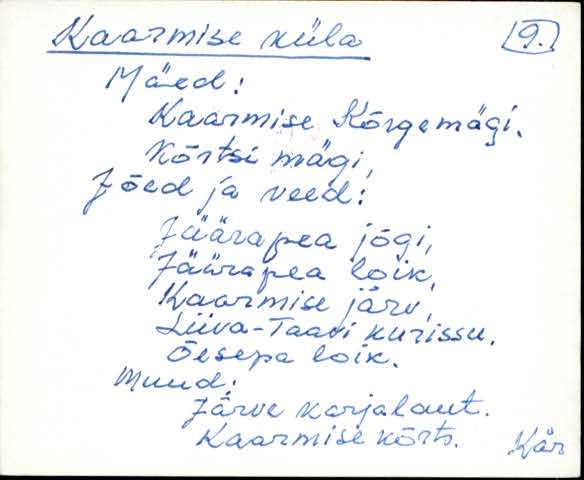 Kaarmise küla
9.
Mäed:
Kaarmise Kõrgemägi.
Kõrtsi mägi,
Jõed ja veed:
Jäärapea jõgi,
Jäärapea loik,
Kaarmise järv,
Liiva-Taavi kurissu.
Õesepa loik.
Muud:
Järve karjalaut.
Kaarmise kõrts.
Kär